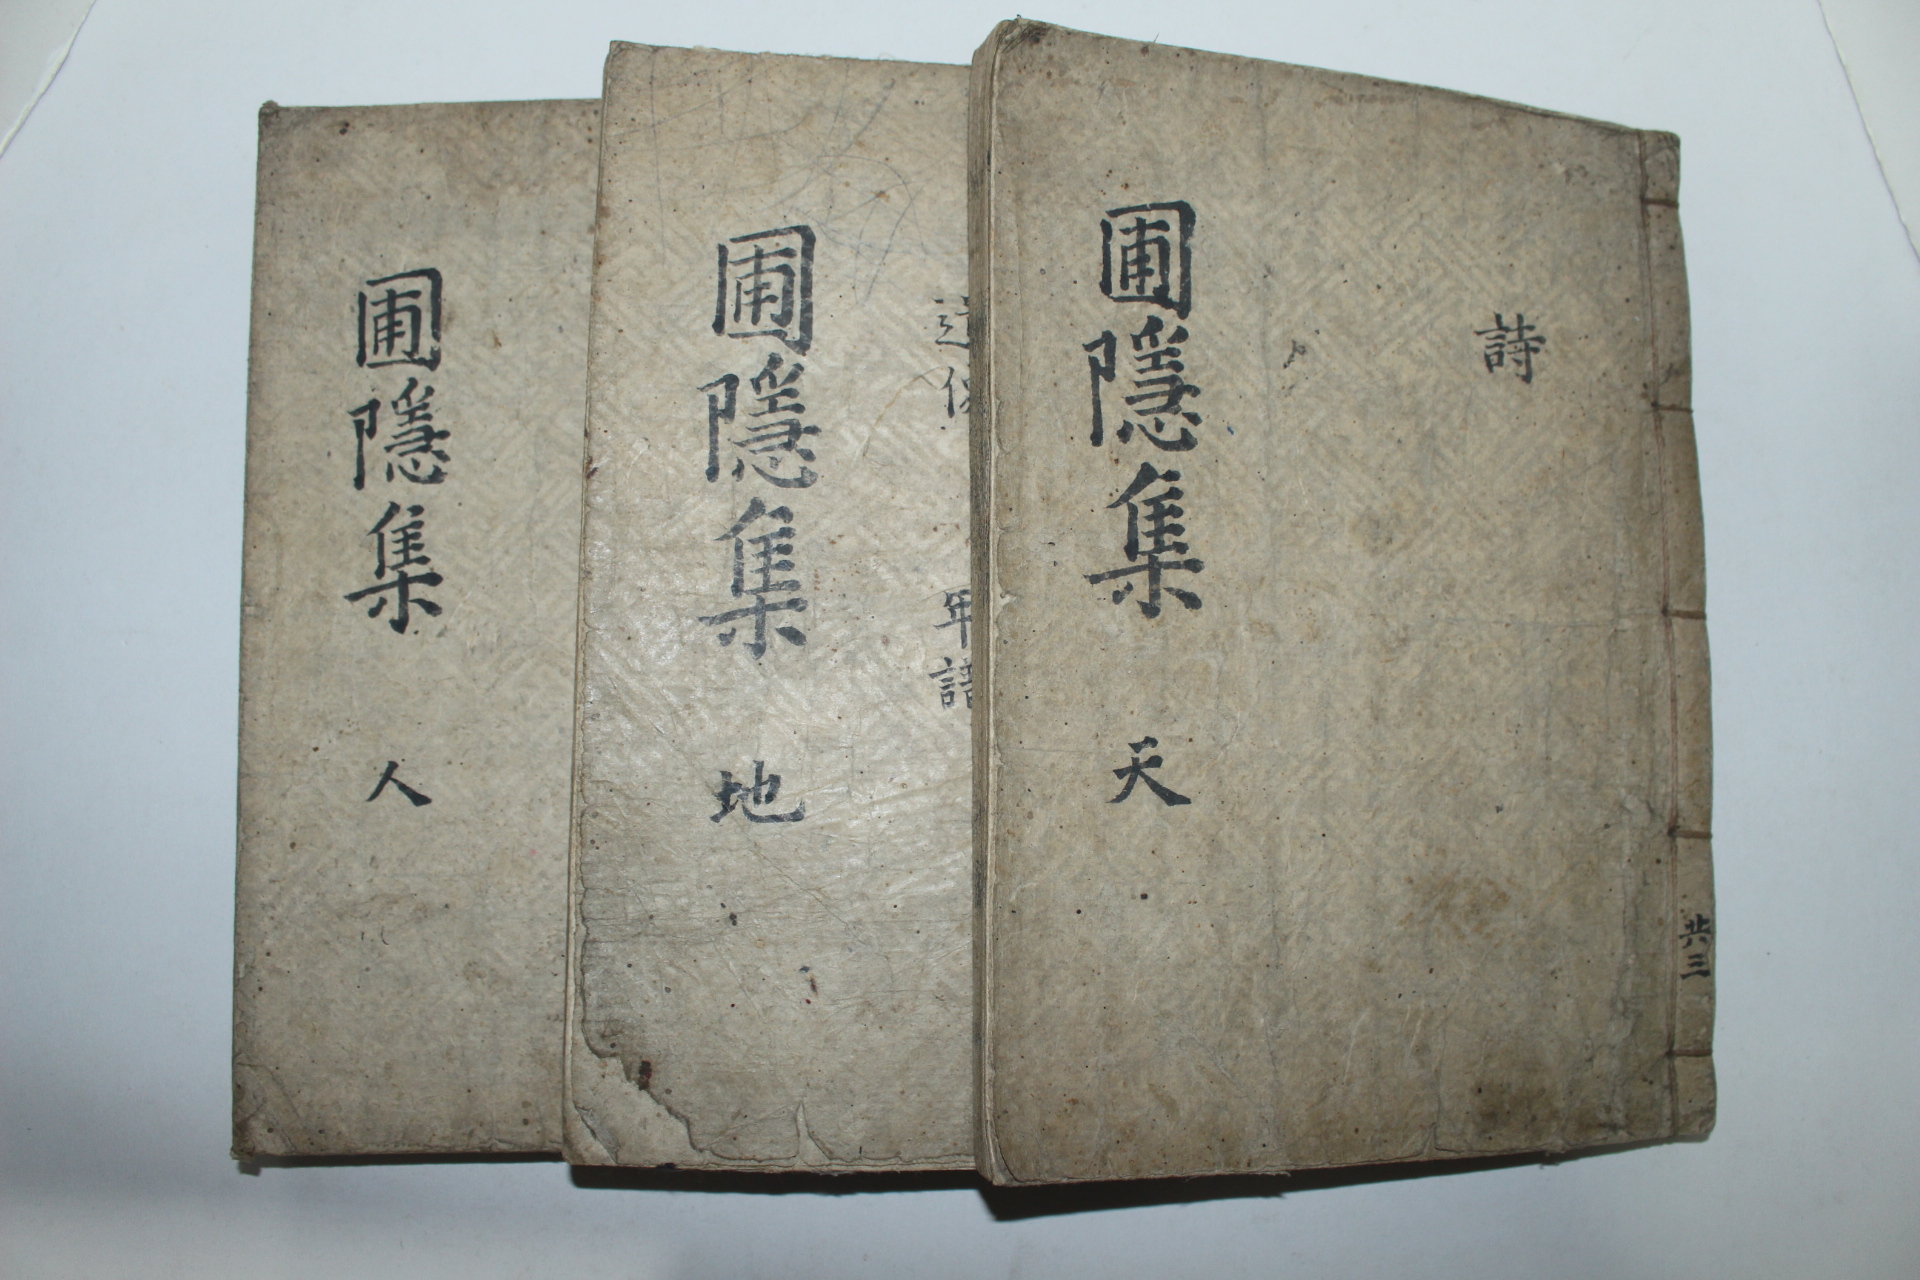 詩
圃隱集 天
共三
年譜
圃隱集 地
圃隱集 人